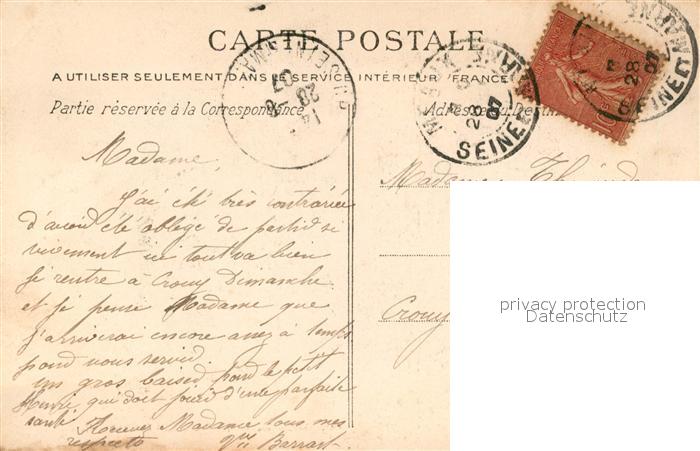 CARTE POSTALE
A UTILISER SEULEMENT DANS LE SERVICE INTÉRIEUR (FRANCE
Partie réservée à la Correspondance
Adresse du Desti
SEINE
28
07
SEINE
28
07
Madame,
J'ai été très contrariée
d'avoir été obligé de partir si
vivement ici tout va bien
je rentre à Crouy Dimanche
et je pense Madame que
j'arriverai encore assez à temps
pour vous servir.
un gros baiser pour le petit
Henri, qui doit jouir d'une parfaite
santé
Recevez Madame tous mes
respects
Madame
Crouy
privacy protection
Datenschutz